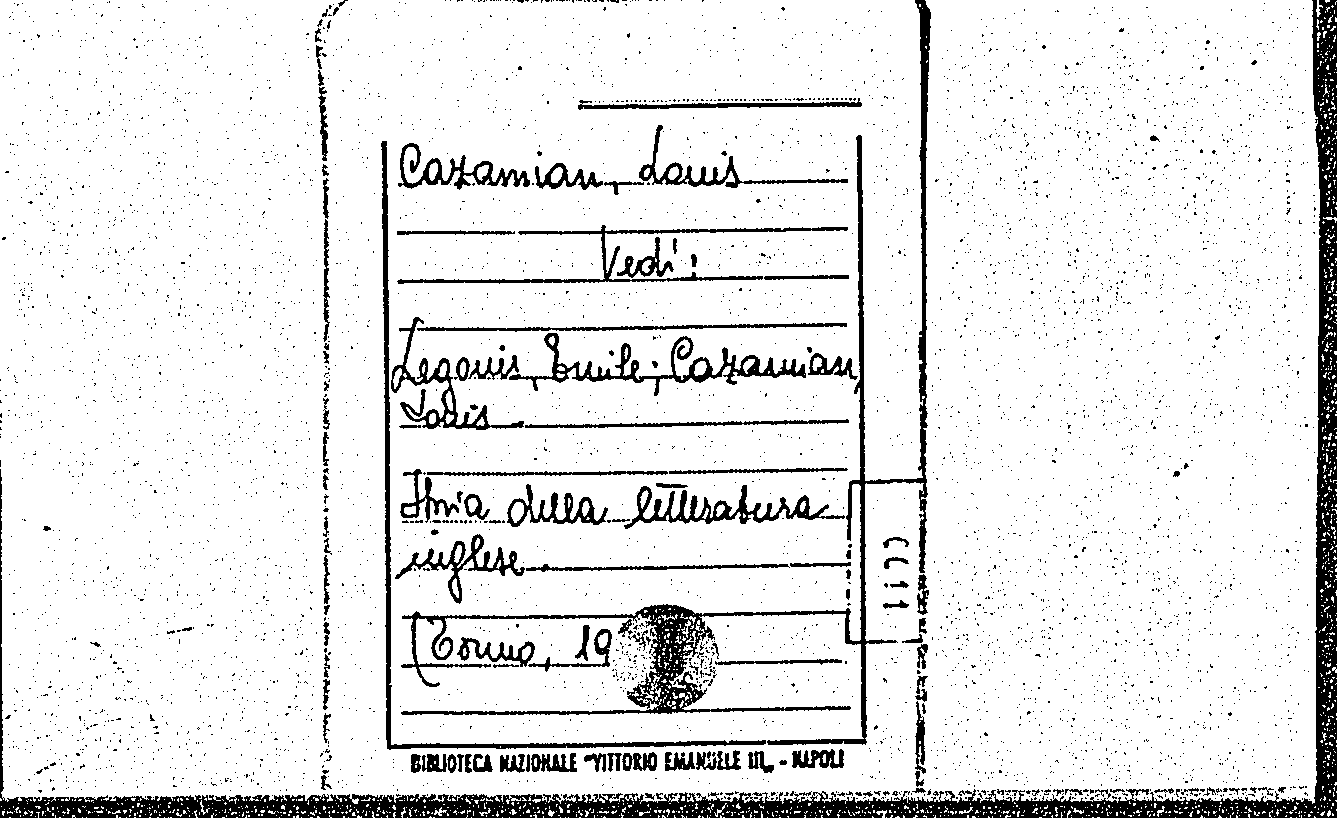 Cazamian, Louis
Vedi:
Legouis, Emile; Cazamian,
Louis.
Storia della letteratura
inglese.
(Torino, 19
BIBLIOTECA NAZIONALE "VITTORIO EMANUELE III" - NAPOLI